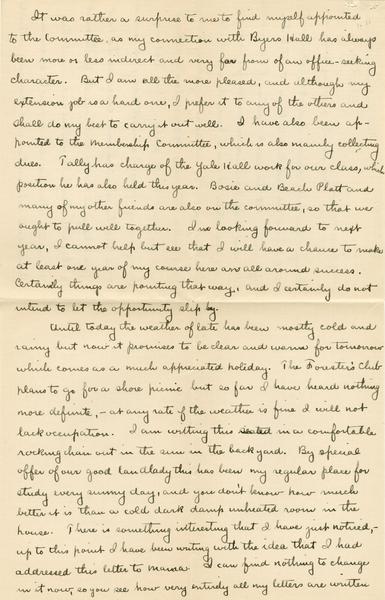 It was rather a surprise to me to find myself appointed
to the Committee, as my connection with Byers Hall has always
been more or less indirect and very far from of an office-seeking
character. But I am all the more pleased, and although my
extension job is a hard one, I prefer it to any of the others and
shall do my best to carry it out well. I have also been ap-
pointed to the Membership Committee, which is also mainly collecting
dues. Tally has charge of the Yale Hall work for our class, which
position he has also held this year. Bosie and Beach Platt and
many of my other friends are also on the committee, so that we
ought to pull well together. In looking forward to next
year, I cannot help but see that I will have a chance to make
at least one year of my course here an all around success.
Certainly things are pointing that way, and I certainly do not
intend to let the opportunity slip by.
Until today the weather of late has been mostly cold and
rainy but now it promises to be clear and warm for tomorrow
which comes as a much appreciated holiday. The Forester's Club
plans to go for a shore picnic but so far I have heard nothing
more definite,- at any rate if the weather is fine I will not
lack occupation. I am writing this seated in a comfortable
rocking chair out in the sun in the back yard. By special
offer of our good landlady this has been my regular place for
study every sunny day, and you don't know how much
better it is than a cold dark damp unheated room in the
house. There is something interesting that I have just noticed,-
up to this point I have been writing with the idea that I had
addressed this letter to Mama. I can find nothing to change
in it now, so you see how very entirely all my letters are written